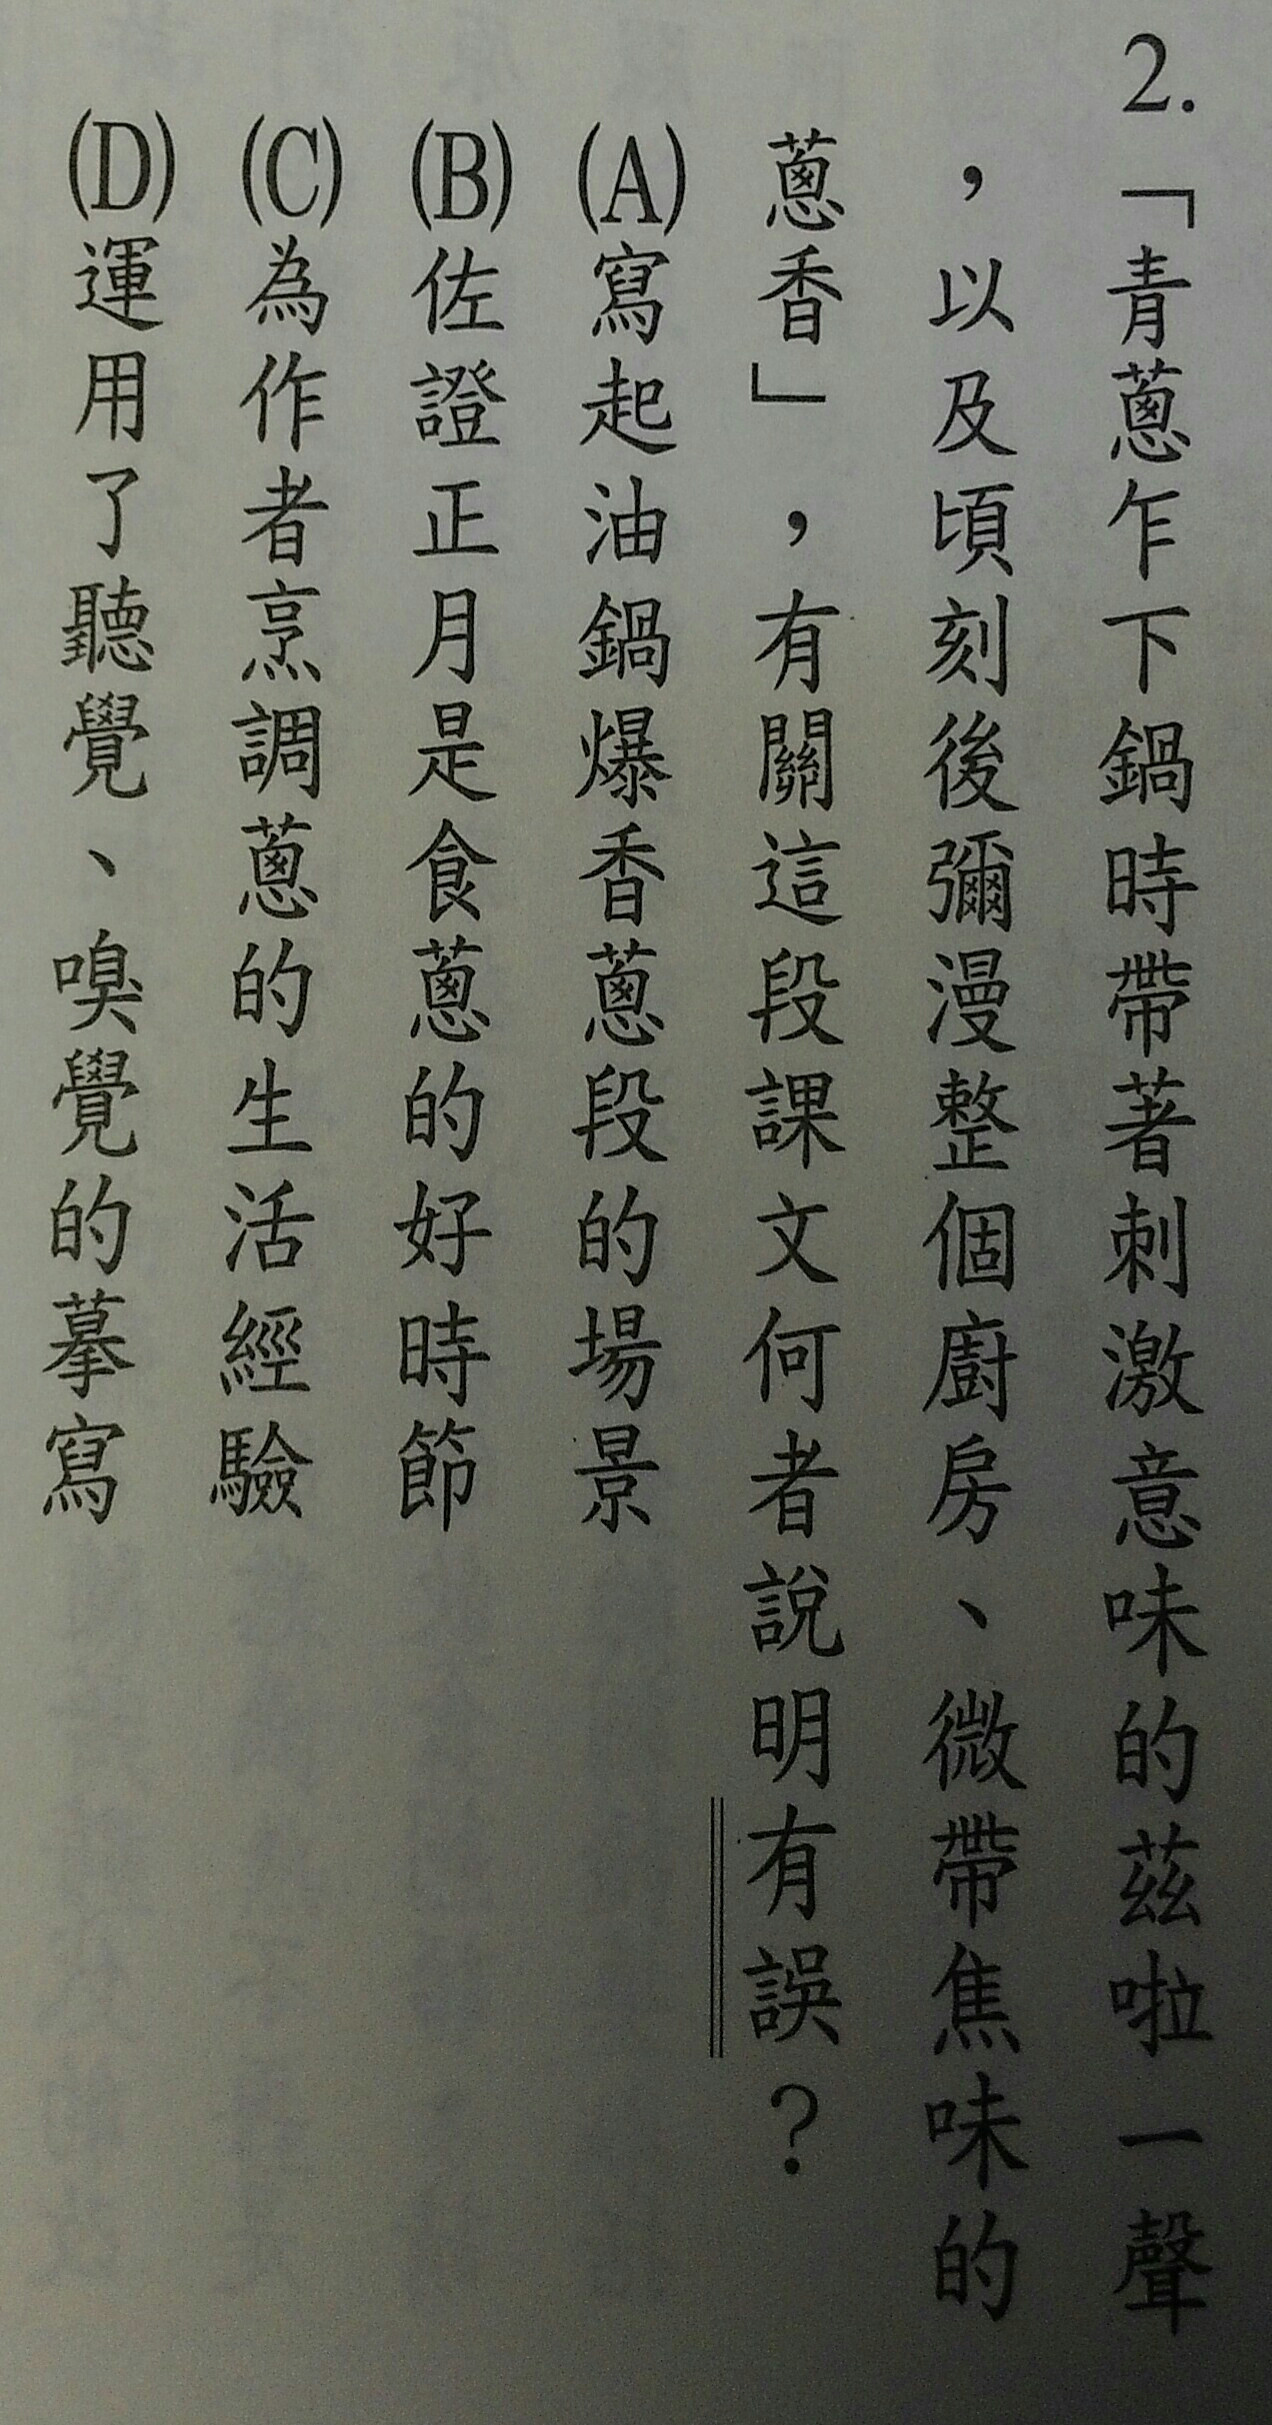 2.「青蔥乍下鍋時帶著刺激意味的茲啦一聲
，以及頃刻後彌漫整個廚房、微帶焦味的
蔥香」，有關這段課文何者說明有誤？
(A)寫起油鍋爆香蔥段的場景
(B)佐證正月是食蔥的好時節
(C)為作者烹調蔥的生活經驗
(D)運用了聽覺、嗅覺的摹寫